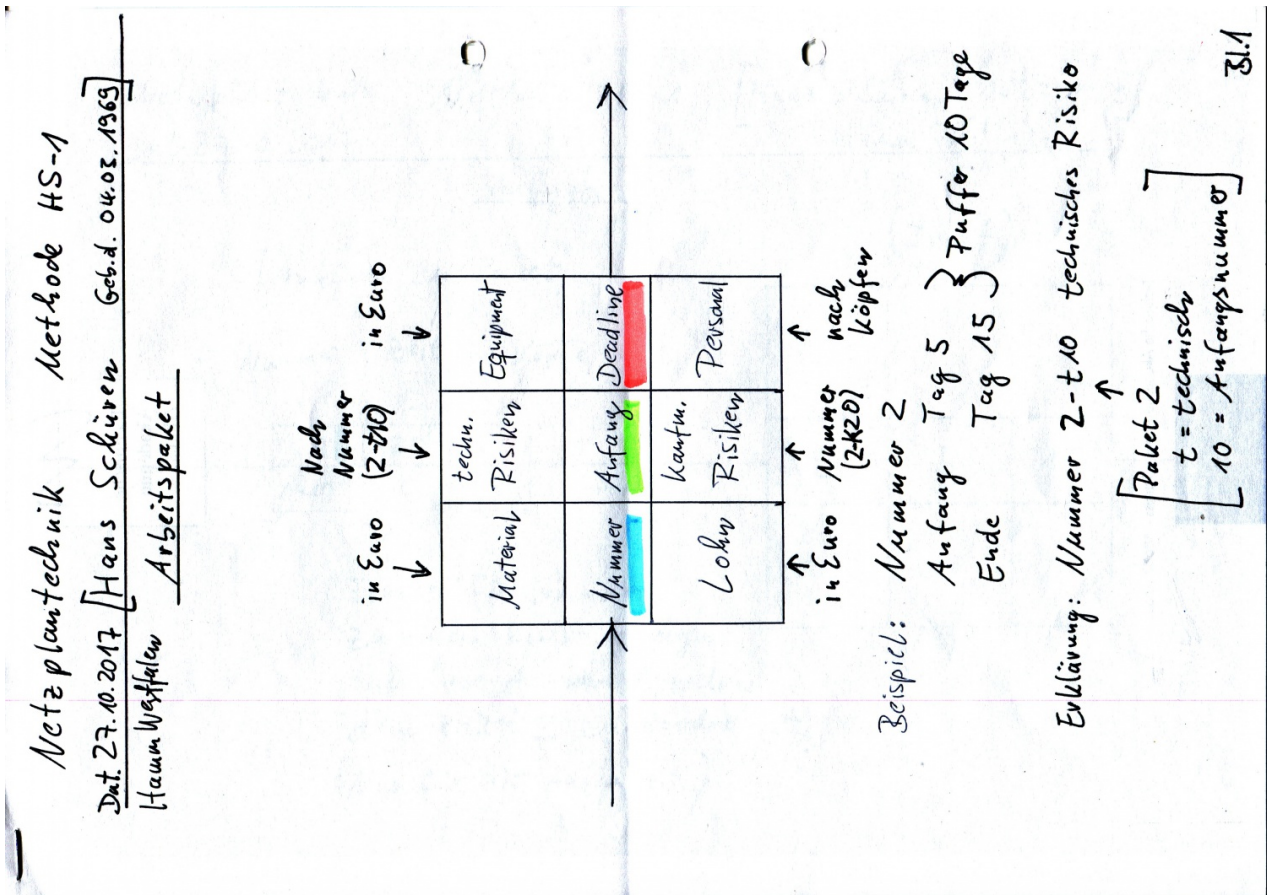 Netzplantechnik Methode HS-1
Dat. 27.10.2017 [Hans Schüren Gebd. 04.03.1969]
Hamm Westfalen
Arbeitspaket
in Euro
Nach Nummer (2-t10)
in Euro
Material
techn. Risiken
Equipment
Nummer
Anfang
Deadline
Lohn
Kaufm. Risiken
Personal
in Euro
Nummer (2-K20)
nach Köpfen
Beispiel: Nummer 2
Anfang Tag 5
Ende Tag 15
} Puffer 10 Tage
Erklärung: Nummer 2-t10 technisches Risiko
[Paket 2
t = technisch
10 = Anfangsnummer]
Bl.1